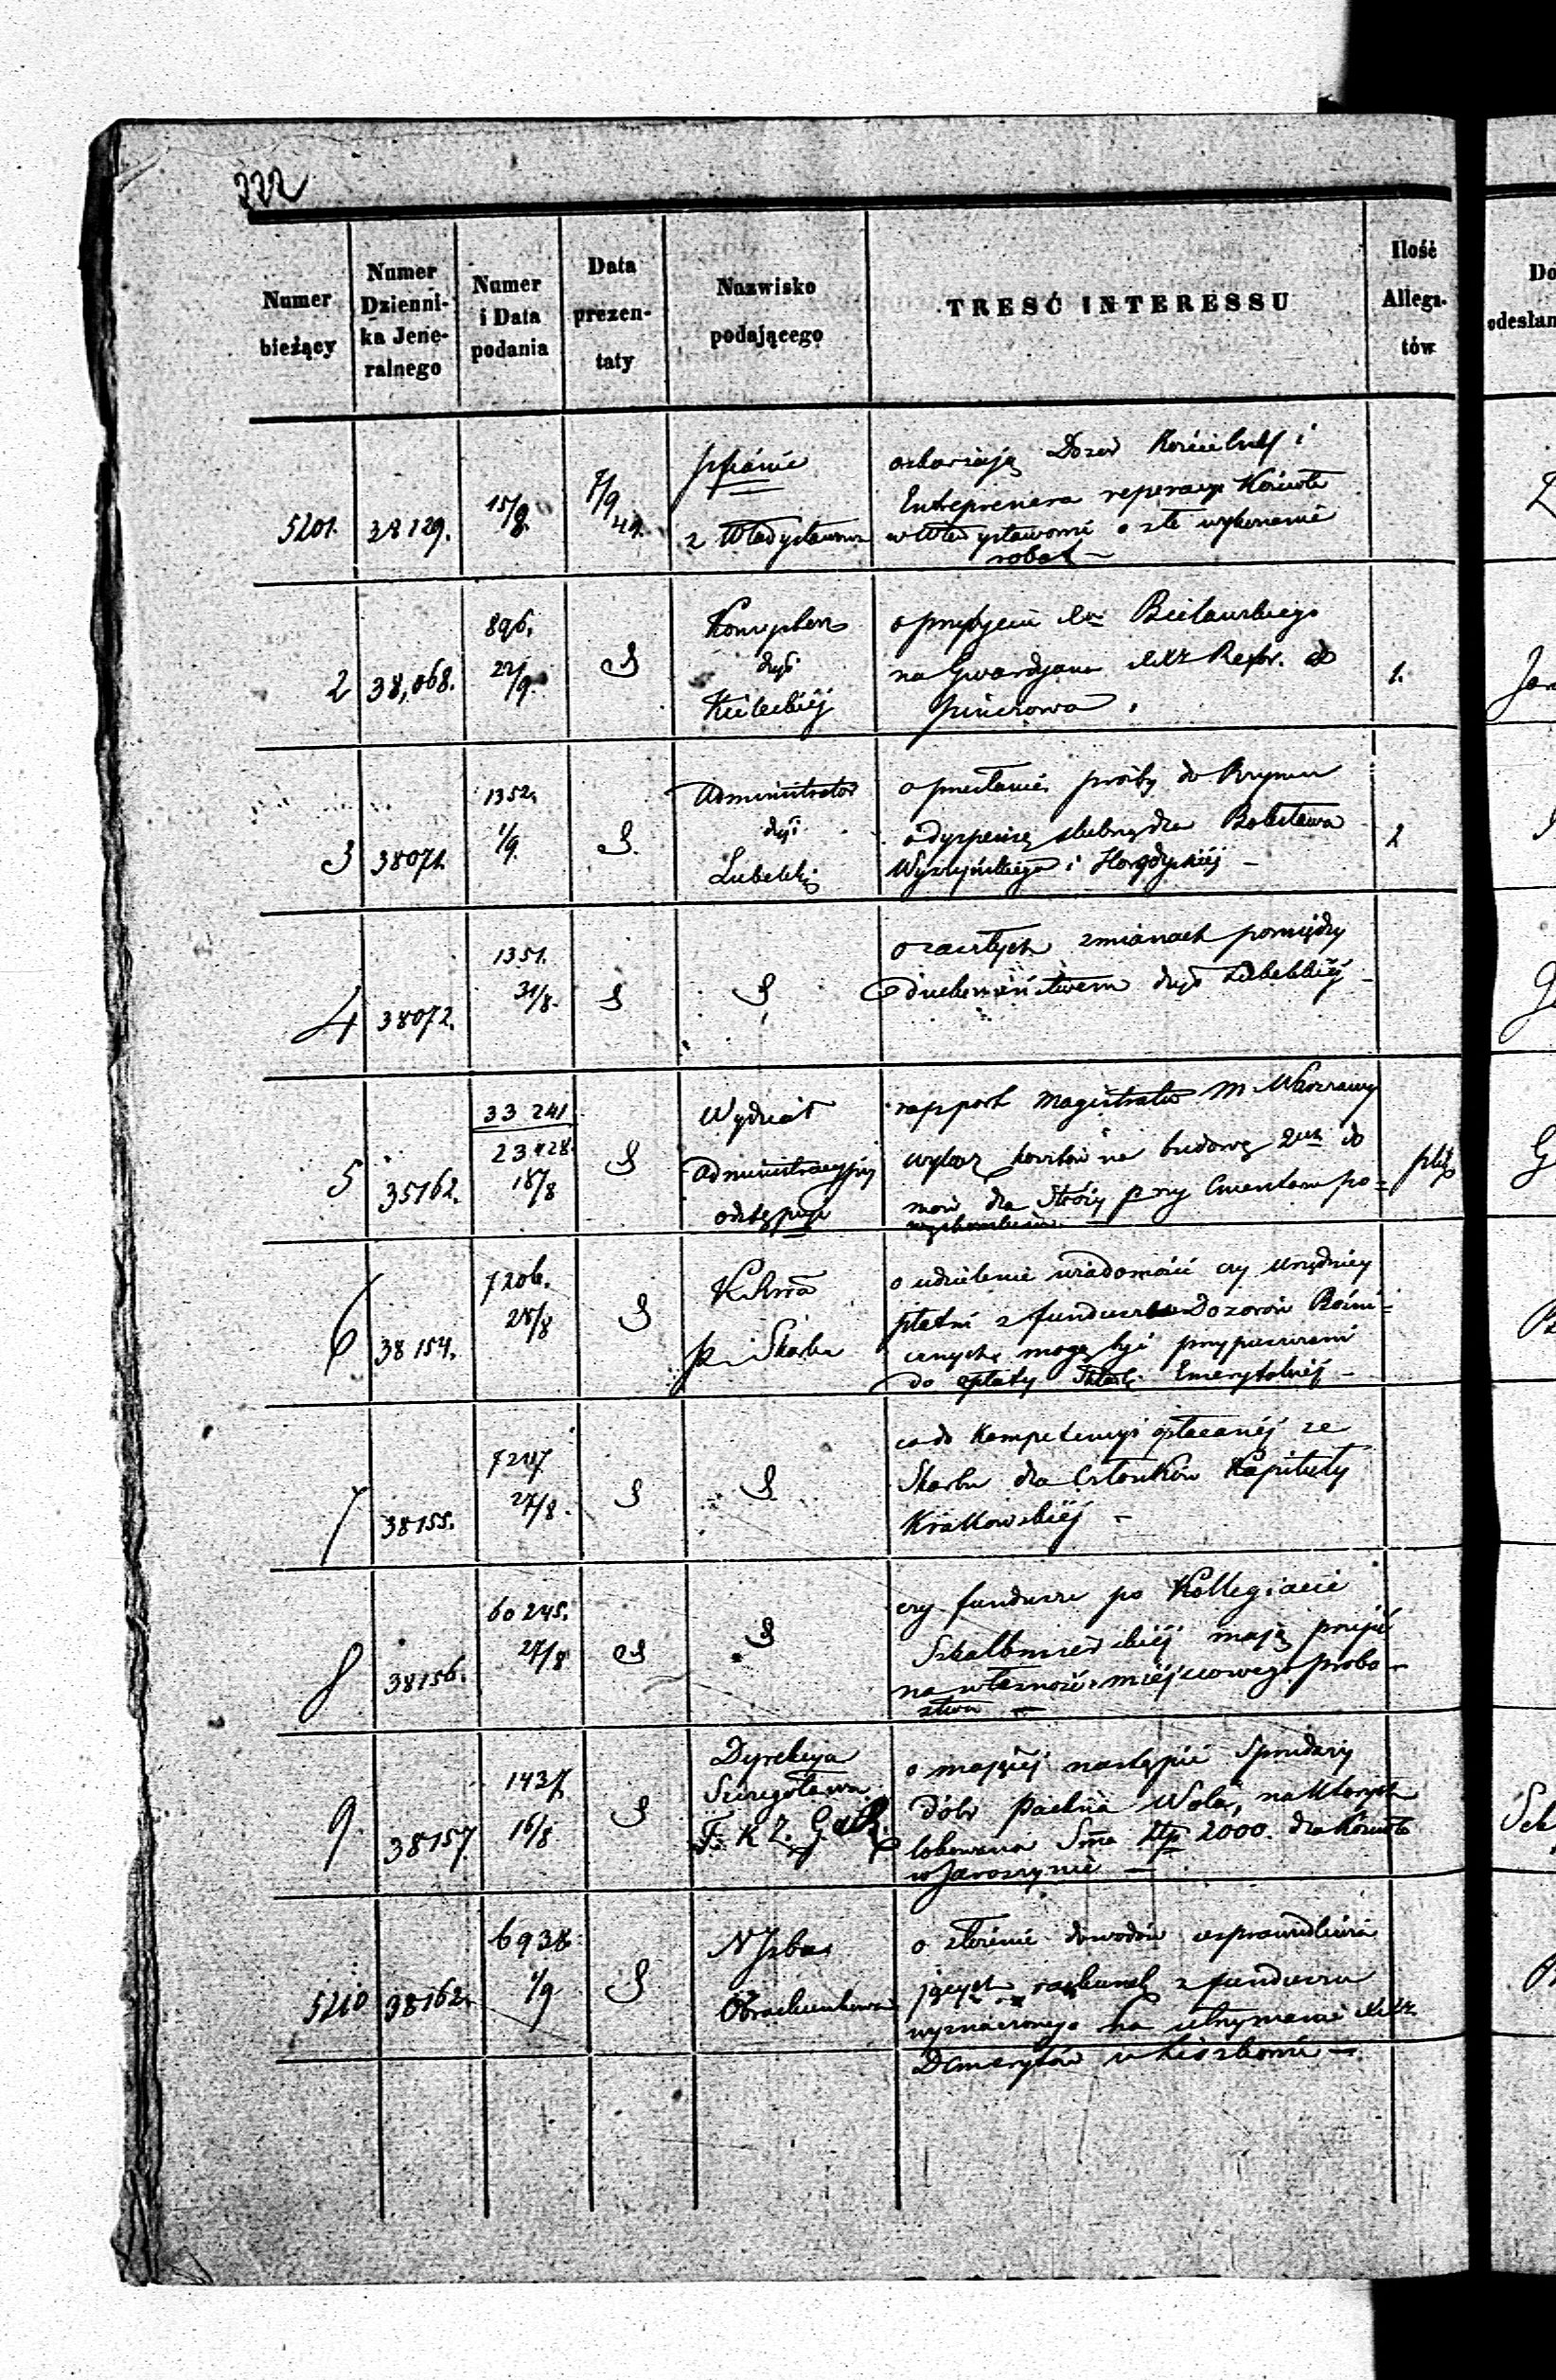 222
Numer bieżący
Numer Dzienni- ka Jene- ralnego
Numer i Data podania
Data prezen- taty
Nazwisko podającego
TREŚĆ INTERESSU
Ilość Allega- tów
Do
odesłan
5201. 38129. 15/8. 7/9 49.
z Władysławowa
oskarżają Dozór Kościelny i
Entreprenera reperacyi Kościoła
w Władysławowie o złe wykonanie
robot —
2 38,068. 896. 22/9.
Konsystorz
dyi
Kieleckiéj
o przybyciu Bielawskiego
na Gwardjana Refor. do
Pinczowa
1.
3 38071. 1352. 1/9.
Administrator
dyi
Lubelskiéj
o przesłanie prośby do Rzymu
o dyspensę ślubną dla Bolesława
Wyszyńskiego i —
2
4 38072. 1351. 31/8.
o zaszłych zmianach pomiędzy
duchowieństwem dyi Lubelskiéj —
5 35162. 33 241 23428. 18/8
Wydział
Administracyjny
odstępuje
rapport Magistratu M. Warszawy
wykaz kosztów na budowę 2ch do
mów dla Stróży przy Cmentarzu po=
plik
6 38154. 7206. 28/8
K. Rzą
P. i Skarbu
o udzielenie wiadomości czy urzędnicy
płatni z funduszów Dozorów Bożni=
cznych mogą być przypuszczeni
do opłaty Składki Emerytalnéj —
7 38155. 7217. 27/8.
co do kompetencyi opłacanéj ze
Skarbu dla Członków Kapituły
Krakowskiéj —
8 38156. 60245. 27/8
czy fundusze po Kollegiacie
Skalbmierskiéj mają przejść
na własność miejscowego probo-
stwa —
9 38157. 1437. 16/8
Dyrekcya
Szczegółowa
T. K. Z. G. R.
o mającéj nastąpić sprzedaży
dóbr Wola, na których
lokowana Sma Złp 2000. dla Kościoła
w Jaroszynie —
5210 38162. 6938. 1/9
N. Izba
Obrachunkowa
o złożenie dowodów usprawiedliwia
jących rachunek z funduszu
wyznaczonego na utrzymanie
Demerytów w Liszkowie —